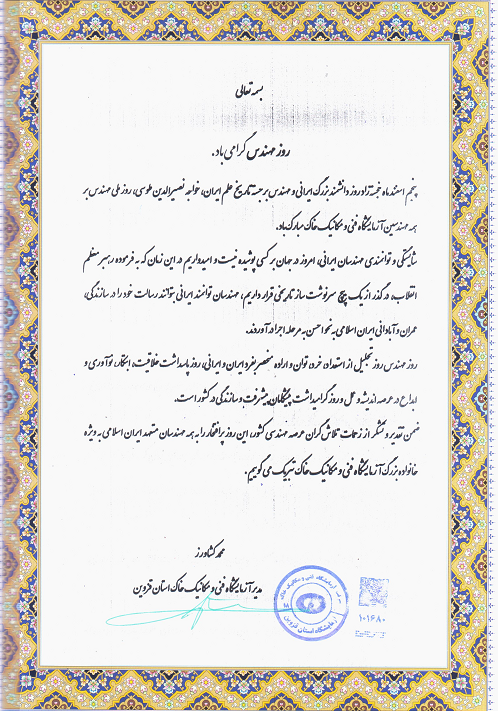 بسمه تعالی
روز مهندس گرامی باد.
پنجم اسفندماه خجسته زادروز دانشمند بزرگ ایرانی و مهندس برجسته تاریخ علم ایران، خواجه نصیرالدین طوسی، روز ملی مهندس بر
همه مهندسین آزمایشگاه فنی و مکانیک خاک مبارک باد.
شایستگی و توانمندی مهندسان ایرانی، امروز در جهان بر کسی پوشیده نیست و امیدواریم در این زمان که به فرموده رهبر معظم
انقلاب، در گذر از یک پیچ سرنوشت ساز تاریخی قرار داریم، مهندسان توانمند ایرانی بتوانند رسالت خود را در سازندگی،
عمران و آبادانی ایران اسلامی به نحو احسن به مرحله اجرا درآورند.
روز مهندس روز تجلیل از استعداد، خرد، توان و اراده منحصر بفرد ایران و ایرانی، روز پاسداشت خلاقیت، ابتکار، نوآوری و
ابداع در عرصه اندیشه و عمل و روز گرامیداشت پیشگامان پیشرفت و سازندگی در کشور است.
ضمن تقدیر و تشکر از زحمات تلاش گران عرصه مهندسی کشور، این روز پر افتخار را به همه مهندسان متعهد ایران اسلامی به ویژه
خانواده بزرگ آزمایشگاه فنی و مکانیک خاک تبریک می گوییم.
محمد کشاورز
مدیر آزمایشگاه فنی و مکانیک خاک استان قزوین
آزمایشگاه فنی و مکانیک خاک
آزمایشگاه استان قزوین
۱۰۱۶۸۰